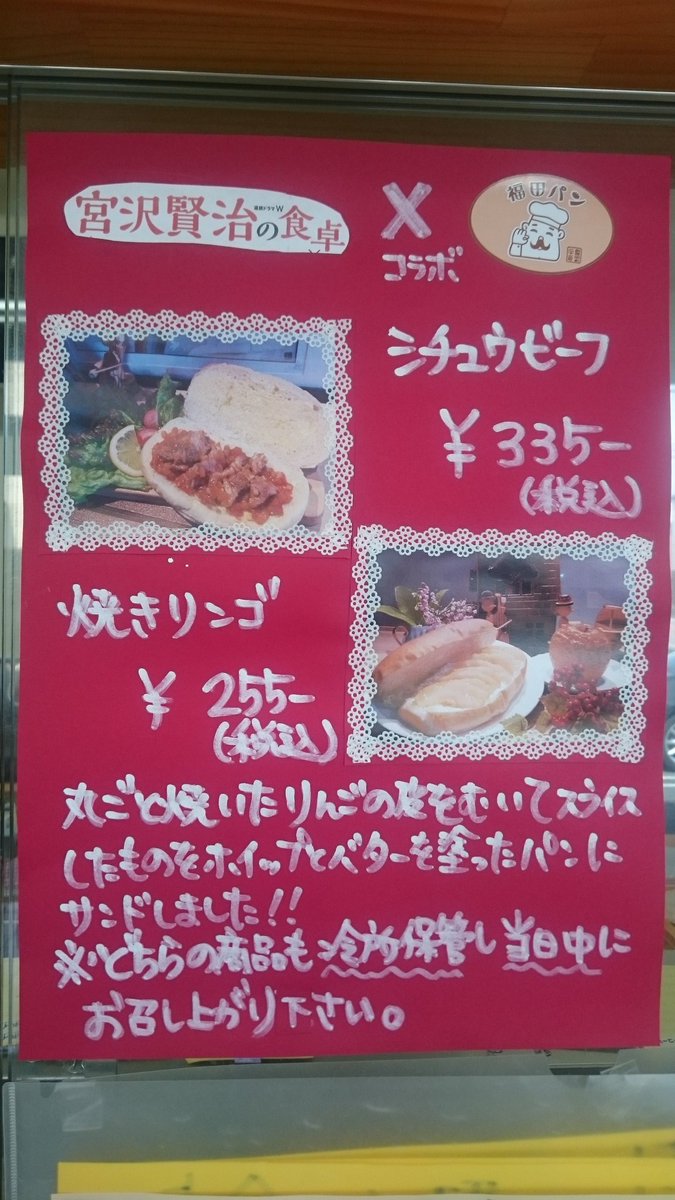 宮沢賢治の食卓
連続ドラマW
X
コラボ
福田パン
シチュウビーフ
¥335-
(税込)
焼きリンゴ
¥255-
(税込)
丸ごと焼いたりんごの皮をむいてスライス
したものをホイップとバターを塗ったパンに
サンドしました!!
※どちらの商品も冷所保管し当日中に
お召し上がり下さい。